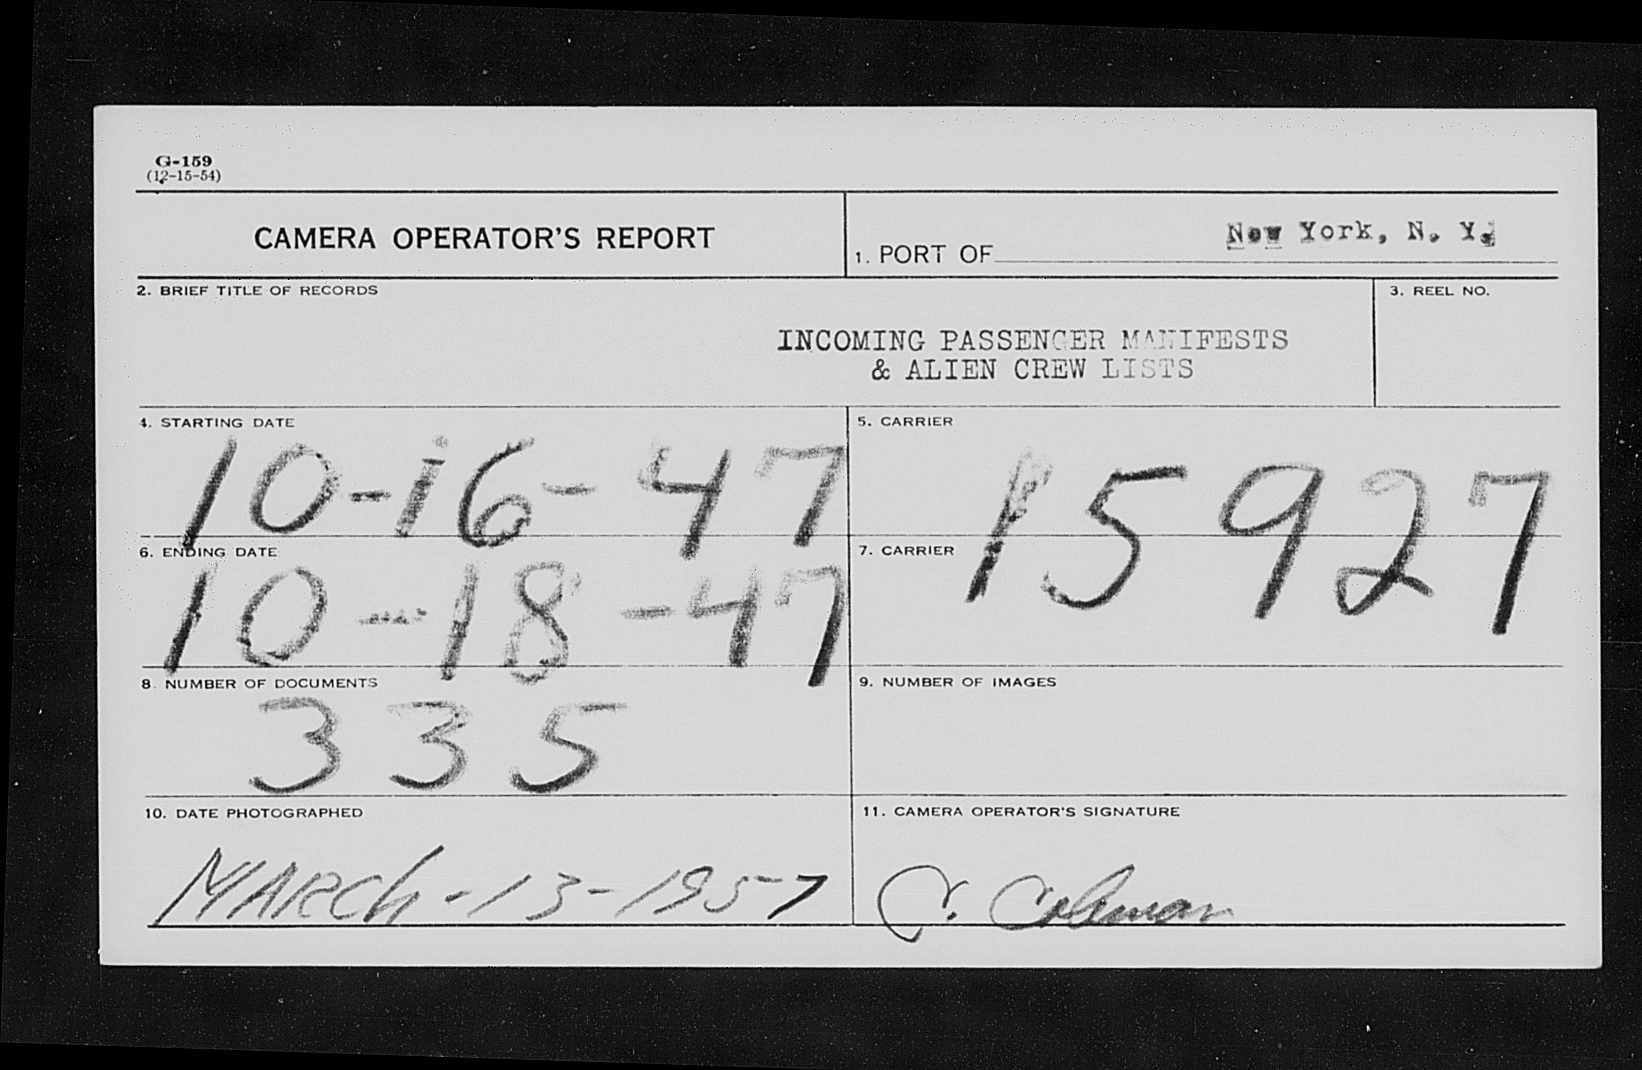 G-159
(12-15-54)
CAMERA OPERATOR'S REPORT
1. PORT OF New York, N. Y.
2. BRIEF TITLE OF RECORDS
INCOMING PASSENGER MANIFESTS
& ALIEN CREW LISTS
3. REEL NO.
4. STARTING DATE
10-16-47
5. CARRIER
15927
6. ENDING DATE
10-18-47
7. CARRIER
8. NUMBER OF DOCUMENTS
335
9. NUMBER OF IMAGES
10. DATE PHOTOGRAPHED
MARCh-13-1957
11. CAMERA OPERATOR'S SIGNATURE
Coleman